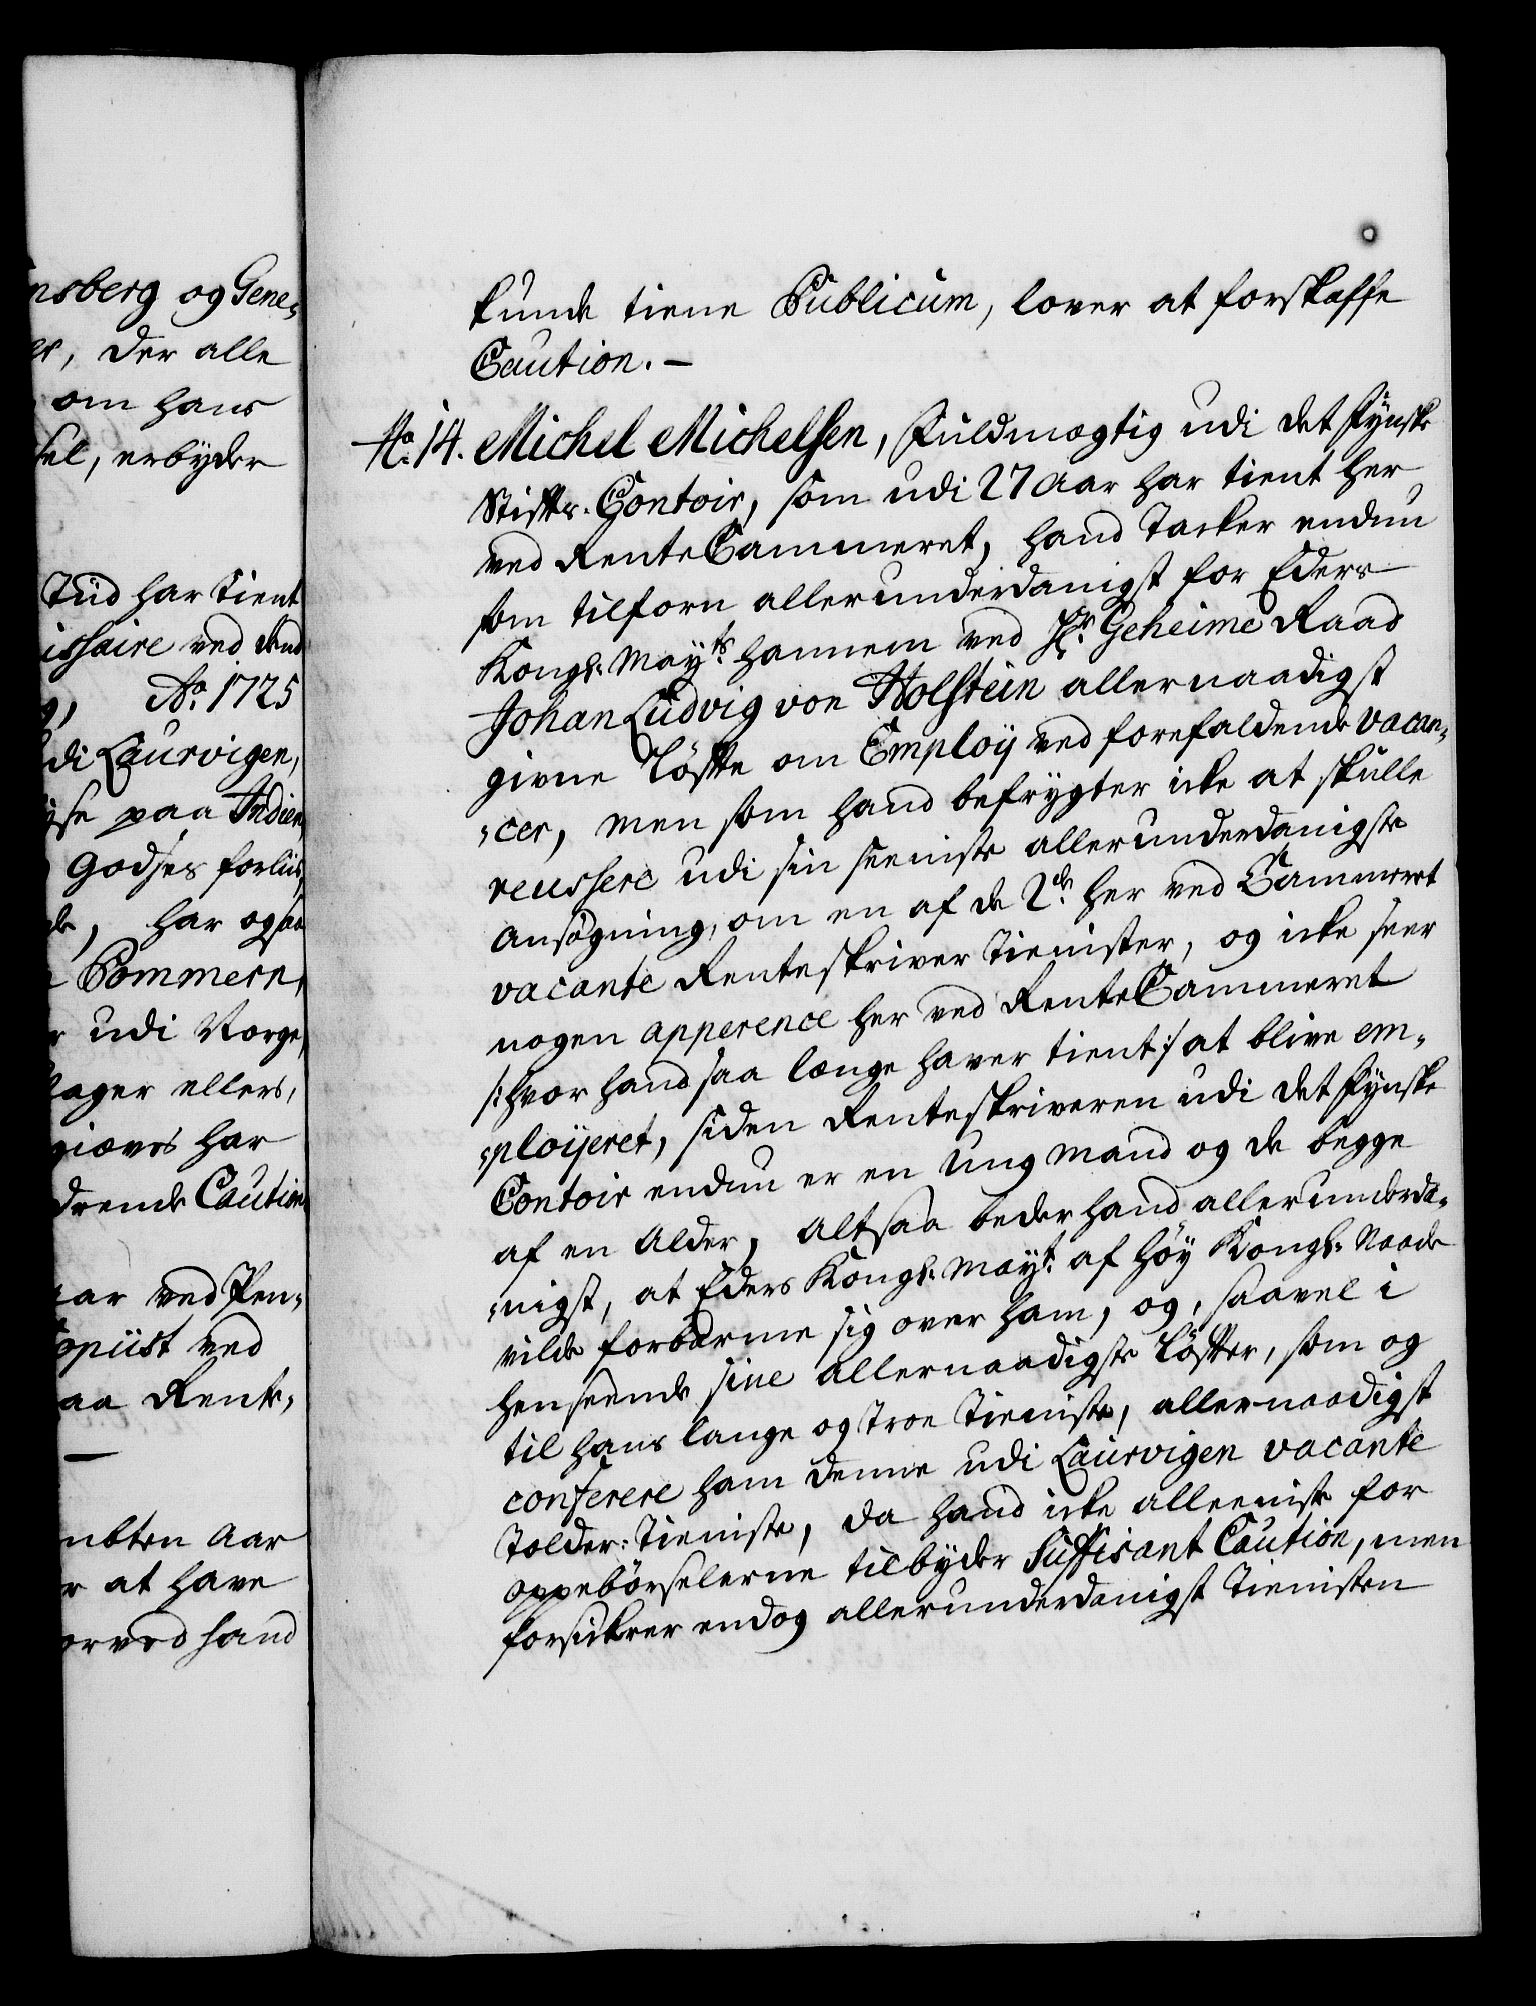 nsberg og Gene-
er, der alle
om hans
sel, erbyder
Tiid har tient
issaire ved dend
Ao. 1725
di Laurvigen,
yse paa Indien
Godses forliis,
de, har ogsaa
Pommern,
r udi Norge,
lager ellers,
giæves har
drende Caution
aar ved Pen-
Copiist ved
aa Rente-
nbten Aar
r at have
orved hand
kunde tiene Publicum, lover at forskaffe
Caution. —
No. 14. Michel Michelsen, Fuldmægtig udi det Fynske
Stiftes Contoir, som udi 27 Aar har tient her
ved RenteCammeret, hand Tacker endnu
som tilforn allerunderdanigst for Eders
Kongl: Mayts. hannem ved Hr. Geheime Raad
Johan Ludvig von Holstein allernaadigst
givne Löfte om Employ ved forefaldende vacan-
-cer, men som hand befrygter icke at skulle
reussere udi sin seeniste allerunderdanigste
Ansögning, om en af de 2de her ved Cammeret
vacante Renteskriver Tienister, og icke seer
nogen apperence her ved RenteCammeret
/: hvor hand saa længe haver tient :/ at blive em-
-ployeret, siden Renteskriveren udi det Fynske
Contoir endnu er en Ung Mand og de begge
af en Alder, Altsaa beder hand allerunderda-
-nigst, at Eders Kongl: Mayt. af höy Kongl: Naade
vilde forbarme sig over ham, og, saavel i
henseende sine allernaadigste Löfter, som og
til hans lange og troe Tieniste, allernaadigst
conferere ham denne udi Laurvigen vacante
Tolder-Tieniste, da hand icke alleeniste for
oppebörselerne tilbyder Suffisant Caution, men
forsickrer endog allerunderdanigst Tienisten